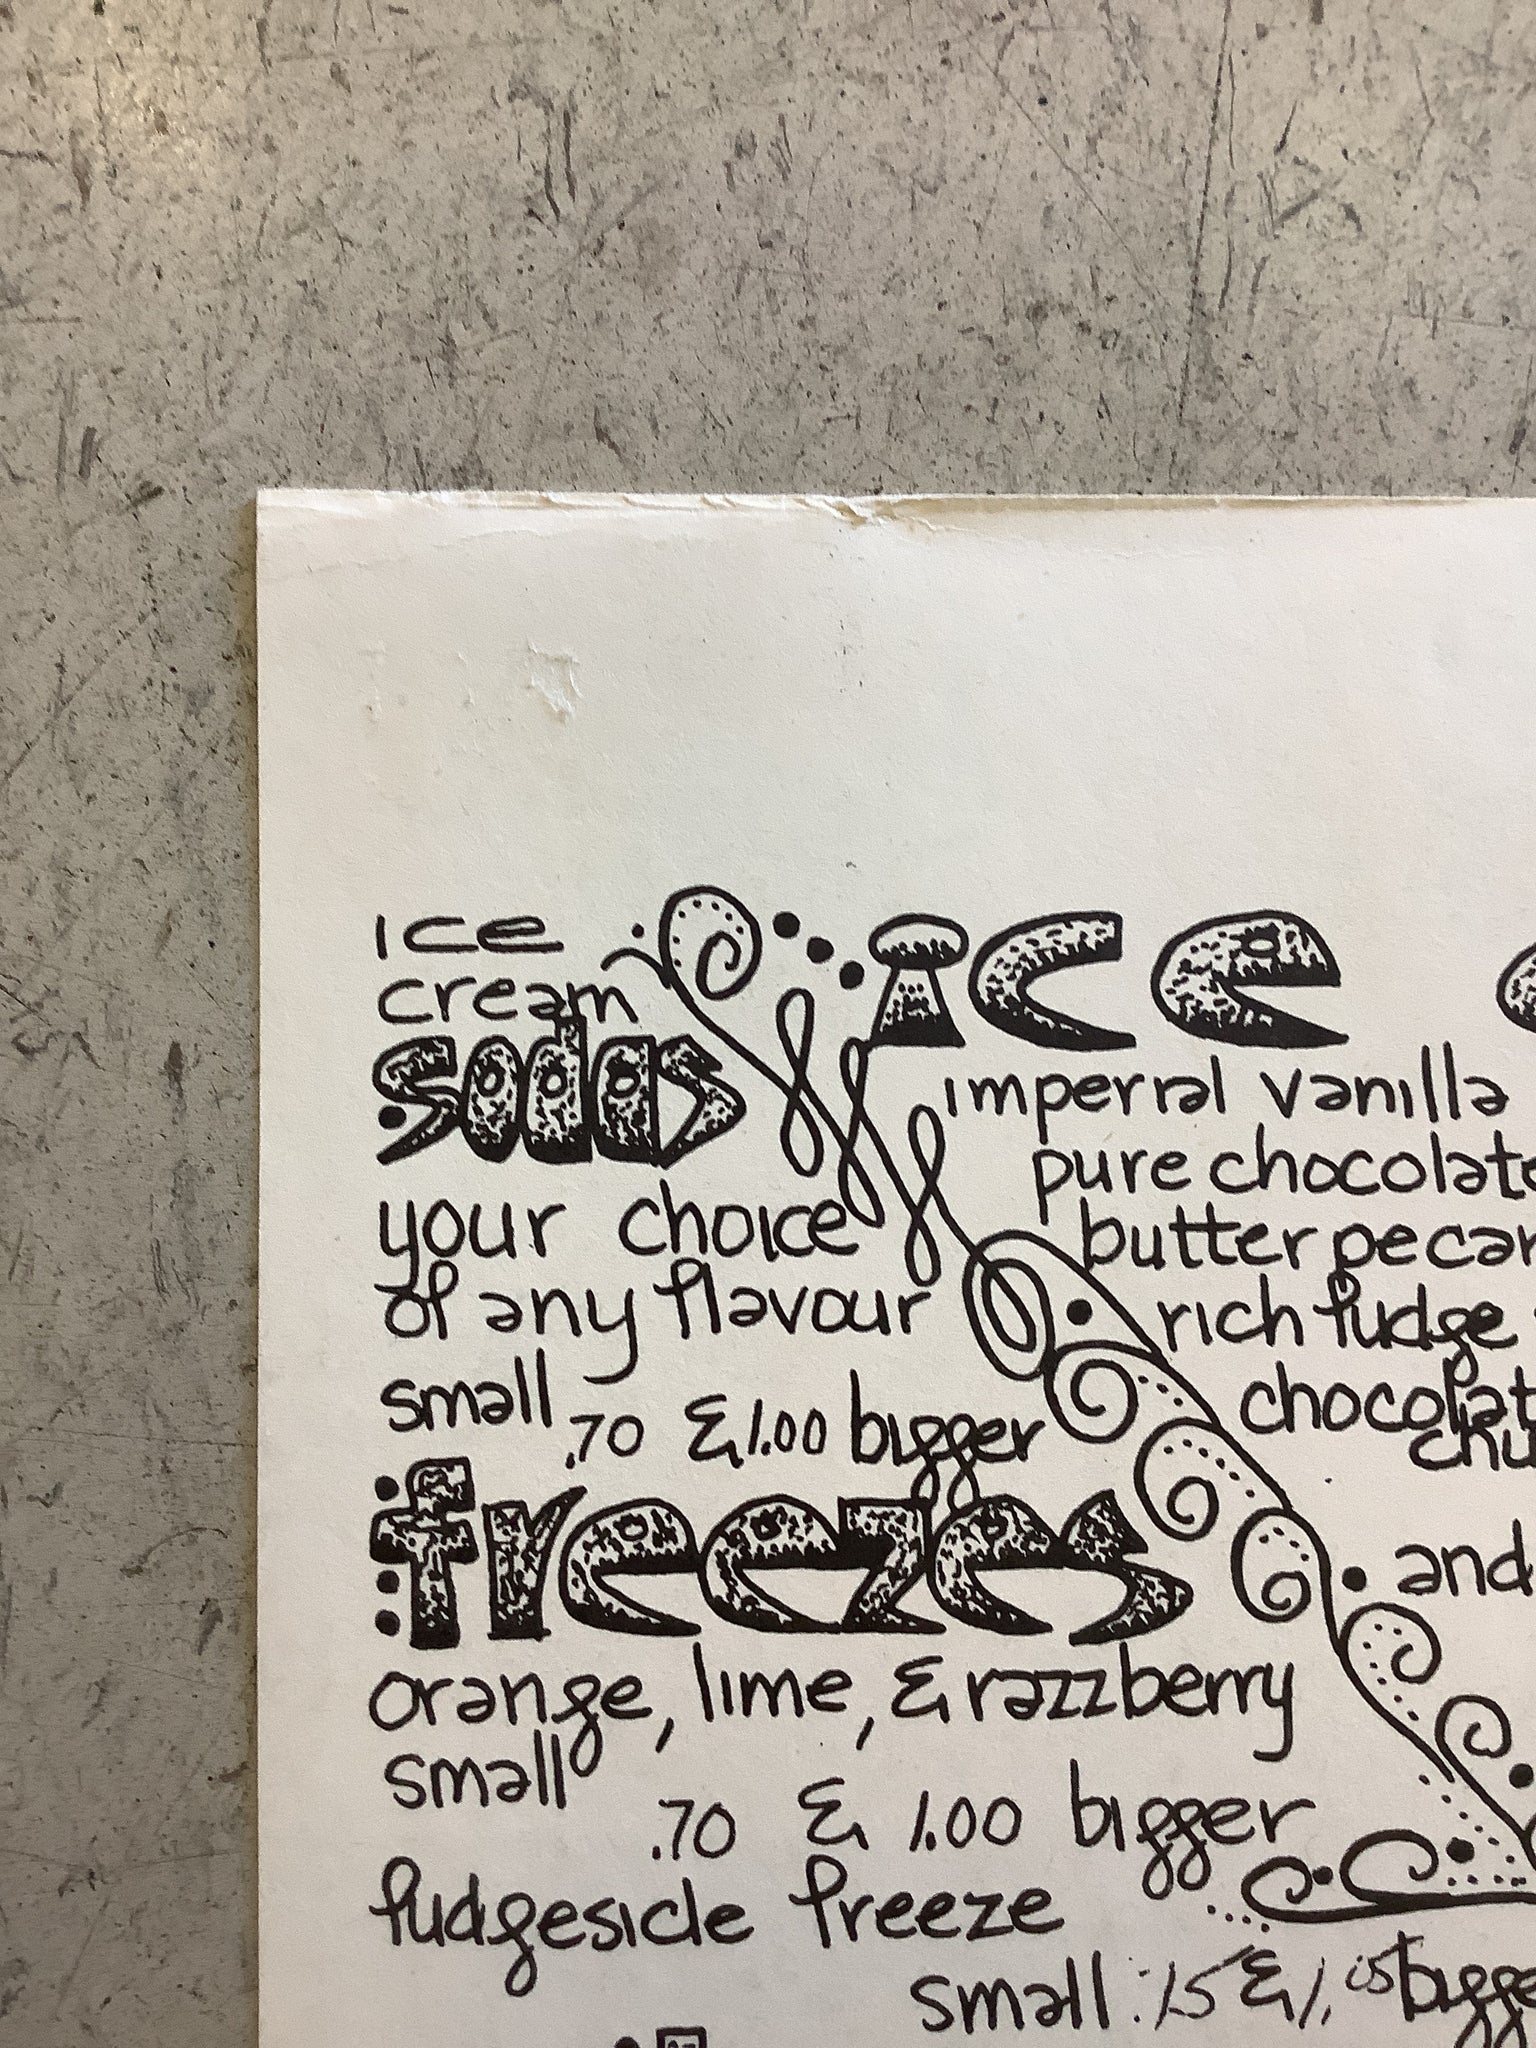 ice
cream
sodas
your choice
of any flavour
small .70 & 1.00 bigger
freezes
orange, lime, & razzberry
small
.70 & 1.00 bigger
fudgesicle freeze
small .75 & 1.05
ice
imperial vanilla
pure chocolate
butter pecan
rich fudge
and